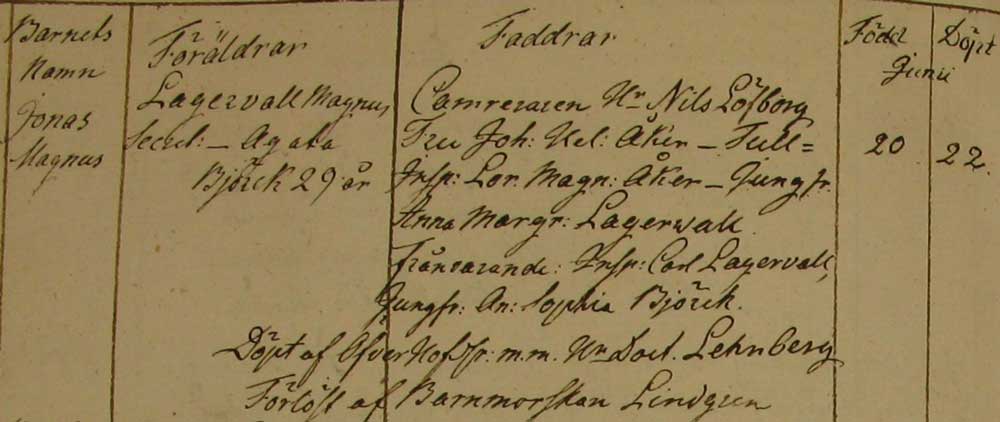 Barnets Namn Föräldrar Faddrar Född Döpt
Junii
Jonas Lagervall Magnus, Camreraren Hr Nils Löfborg
Magnus Secret: – Agata Fru Joh: Hel: Åker – Tull= 20 22.
Björck 29 år Insp: Lor. Magn: Åker – Jungfr.
Anna Margr: Lagerwall.
Frånvarande: Insp: Carl Lagervall,
Jungfr: An: Sophia Björck.
Döpt af Öfver Hofpr: m.m. Hr Doct. Lehnberg
Förlöst af Barnmorskan Lindgren